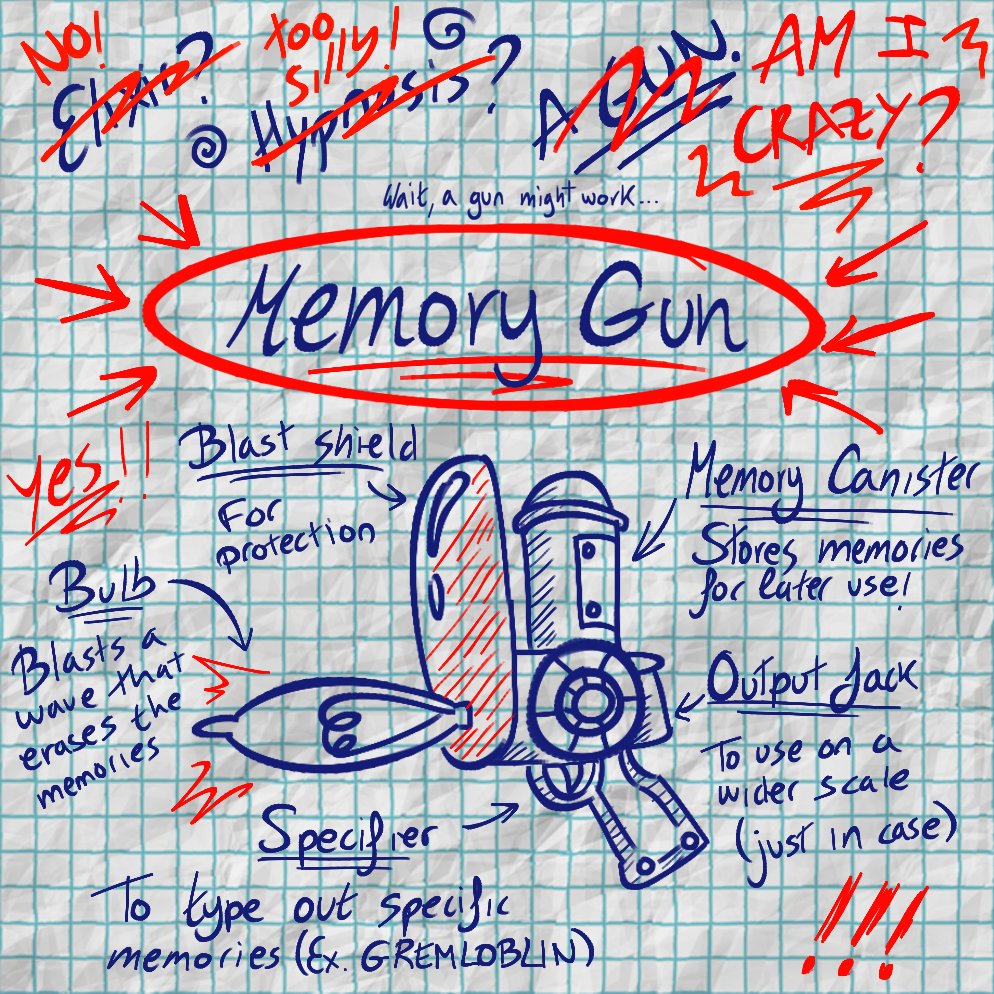 NO!
Elixir?
TOO
SILLY!
Hypnosis?
A GUN.
AM I
CRAZY?
Wait, a gun might work...
Memory Gun
Yes!!
Blast shield
For
protection
Memory Canister
Stores memories
for later use!
Bulb
Blasts a
wave that
erases the
memories
Output Jack
To use on a
wider scale
(just in case)
Specifier
To type out specific
memories (Ex. GREMLOBLIN)
!!!